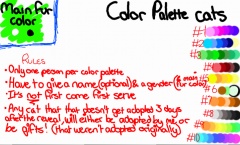 Main fur color
Color Palette cats
Rules
• Only one person per color palette
• Have to give a name (optional) & a gender (& main fur color)
• It's not first come first serve
• Any cat that that doesn't get adopted 3 days
after the reveal, will either be adopted by me, or
be gifts! (that weren't adopted originally)
#1
#2
#3
#4
#5
#6
#7
#8
#9
#10